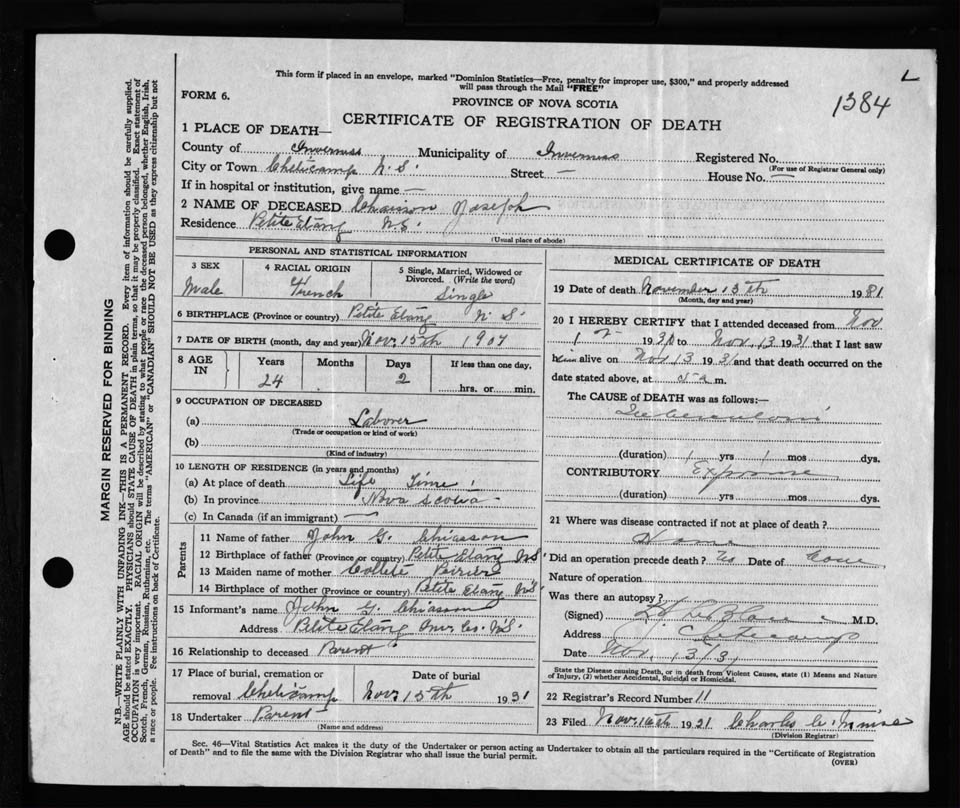 This form if placed in an envelope, marked "Dominion Statistics—Free, penalty for improper use, $300," and properly addressed
will pass through the Mail "FREE"
L
1384
FORM 6.
PROVINCE OF NOVA SCOTIA
CERTIFICATE OF REGISTRATION OF DEATH
1 PLACE OF DEATH—
County of Inverness Municipality of Inverness Registered No.
(For use of Registrar General only)
City or Town Cheticamp N.S. Street — House No. —
If in hospital or institution, give name —
2 NAME OF DECEASED Chaisson Joseph
Residence Petite Etang N.S.
(Usual place of abode)
PERSONAL AND STATISTICAL INFORMATION
3 SEX
Male
4 RACIAL ORIGIN
French
5 Single, Married, Widowed or
Divorced. (Write the word)
Single
6 BIRTHPLACE (Province or country) Petite Etang N.S.
7 DATE OF BIRTH (month, day and year) Nov. 15th 1907
8 AGE
IN
Years
24
Months
Days
2
If less than one day,
hrs. or min.
9 OCCUPATION OF DECEASED
(a) Laborer
(Trade or occupation or kind of work)
(b)
(Kind of industry)
10 LENGTH OF RESIDENCE (in years and months)
(a) At place of death Life Time
(b) In province Nova Scotia
(c) In Canada (if an immigrant) —
Parents
11 Name of father John G. Chiasson
12 Birthplace of father (Province or country) Petite Etang N.S.
13 Maiden name of mother Collete
14 Birthplace of mother (Province or country) Petite Etang N.S.
15 Informant's name John G. Chiasson
Address Petite Etang Inv. Co. N.S.
16 Relationship to deceased Parent
17 Place of burial, cremation or
removal Cheticamp
Date of burial
Nov. 15th 1931
18 Undertaker Parent
(Name and address)
MEDICAL CERTIFICATE OF DEATH
19 Date of death November 13th 1931
(Month, day and year)
20 I HEREBY CERTIFY that I attended deceased from Nov
1 19 to Nov 13 1931 that I last saw
him alive on Nov 13 1931 and that death occurred on
date stated above, at a m.
The CAUSE of DEATH was as follows:—
Tuberculosis
(duration) 1 yrs 1 mos. dys.
CONTRIBUTORY Exposure
(duration) yrs mos. dys.
21 Where was disease contracted if not at place of death?
Home
Did an operation precede death? No Date of
Nature of operation
Was there an autopsy?
(Signed) M.D.
Address Cheticamp
Date
State the Disease causing Death, or in death from Violent Causes, state (1) Means and Nature
of Injury, (2) whether Accidental, Suicidal or Homicidal.
22 Registrar's Record Number 11
23 Filed Nov. 16th 1931 Charles W.
(Division Registrar)
Sec. 46—Vital Statistics Act makes it the duty of the Undertaker or person acting as Undertaker to obtain all the particulars required in the "Certificate of Registration
of Death" and to file the same with the Division Registrar who shall issue the burial permit.
(OVER)
MARGIN RESERVED FOR BINDING
N.B.—WRITE PLAINLY WITH UNFADING INK—THIS IS A PERMANENT RECORD. Every item of information should be carefully supplied.
AGE should be stated EXACTLY. PHYSICIANS should STATE CAUSE OF DEATH in plain terms, so that it may be properly classified. Exact statement of
OCCUPATION is very important. RACIAL ORIGIN will be described by stating to what people or race the deceased person belonged, whether English, Irish,
Scotch, French, German, Russian, Ruthenian, etc. The terms "AMERICAN" or "CANADIAN" SHOULD NOT BE USED as they express citizenship but not
a race or people. Fee instructions on back of Certificate.